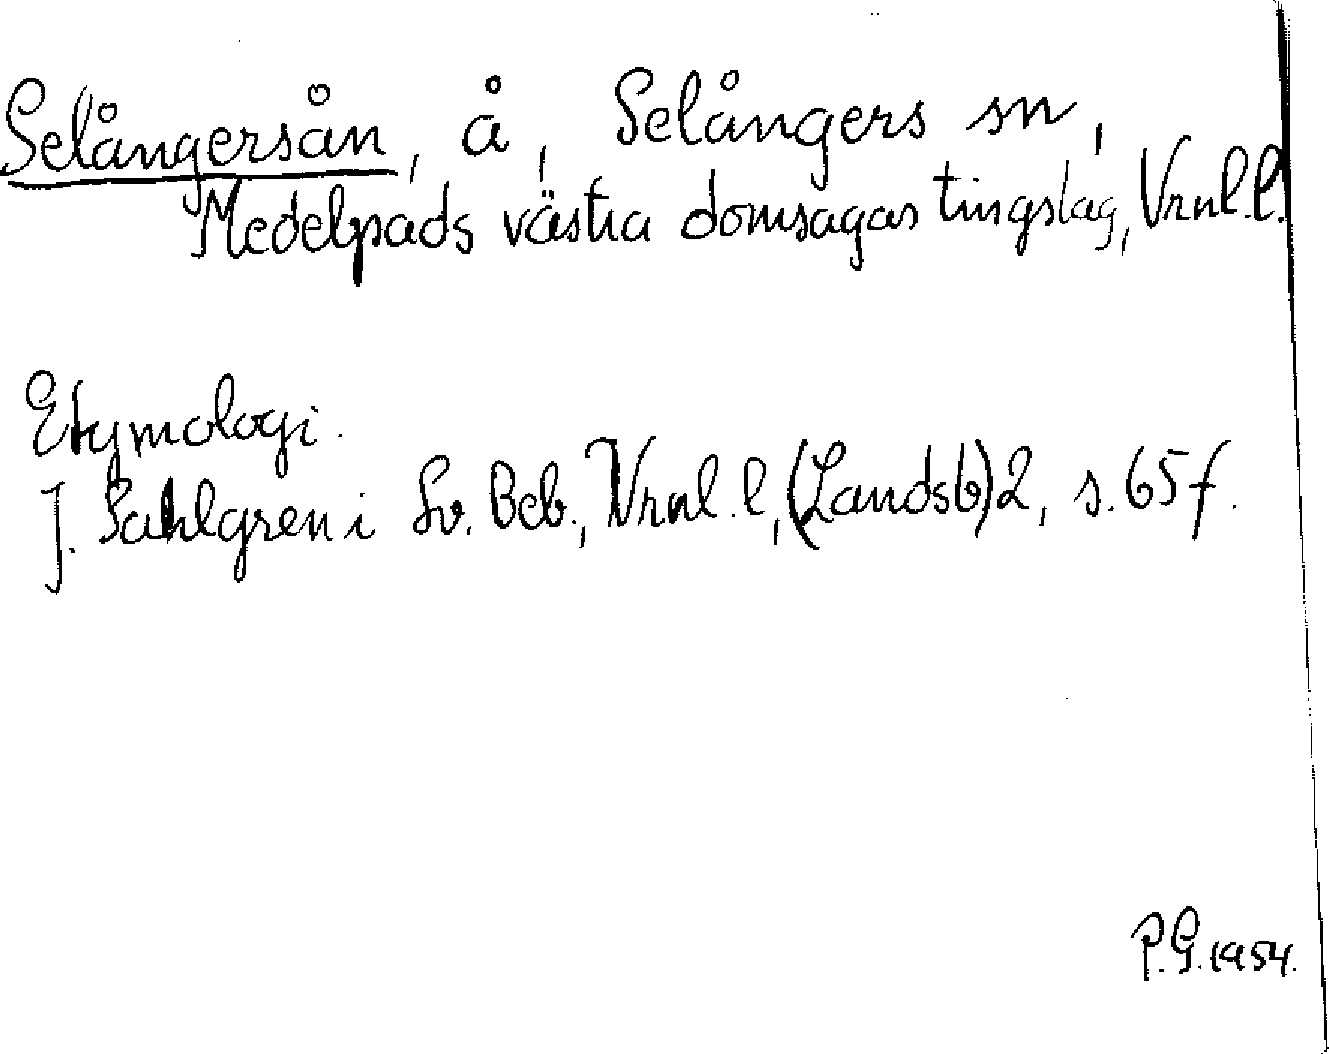 Selångersån, å, Selångers sn,
Medelpads västra domsagas tingslag, Vrnl.l.
Etymologi.
J. Sahlgren i Sv. Beb., Vrnl. l, (Landsb) 2, s. 65 f.
P.G. 1954.